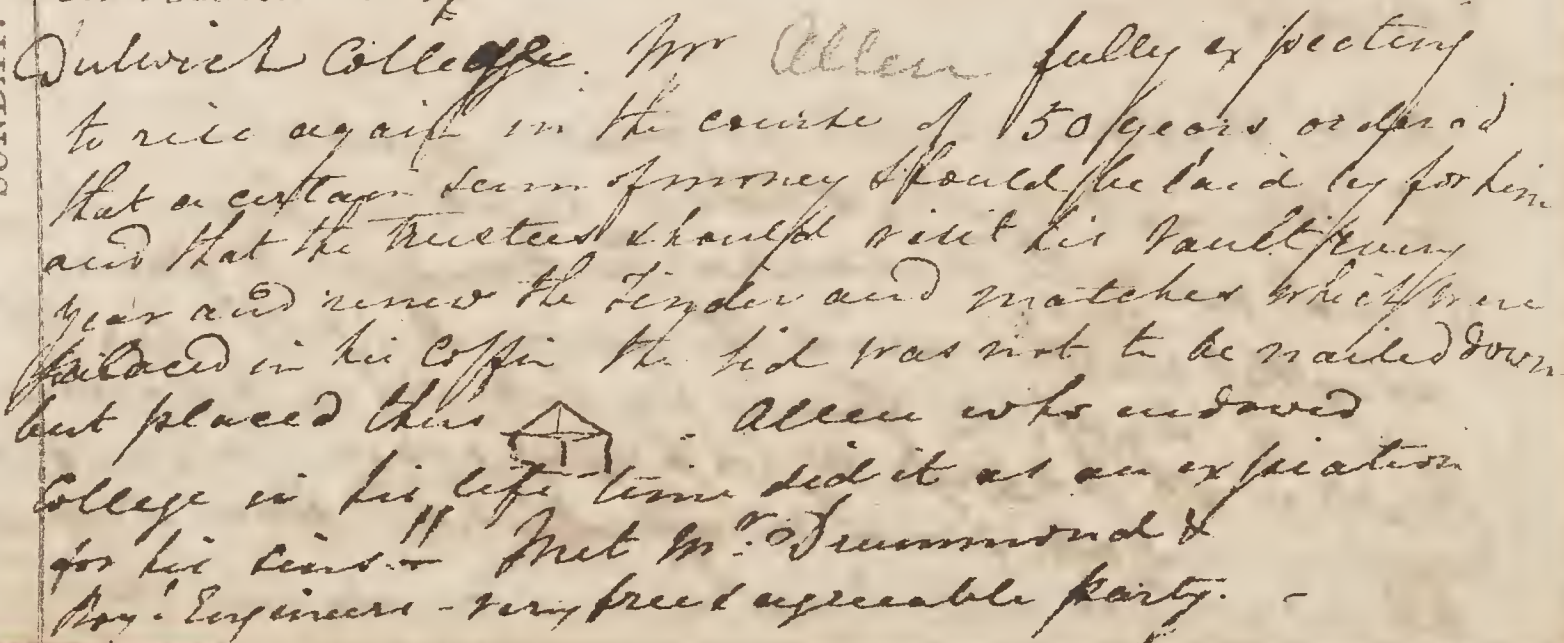 Dulwich College. Mr Allen fully expecting
to rise again in the course of 50 years ordered
that a certain sum of money should be laid by for him
and that the Trustees should visit his Vault every
year and renew the Tinder and matches which were
placed in his Coffin the lid was not to be nailed down
but placed thus . Allen who endowed
College in his life time did it as an expiation
for his sins" - Met Mr. Drummond &
Roy: Engineers - very free & agreeable party. -